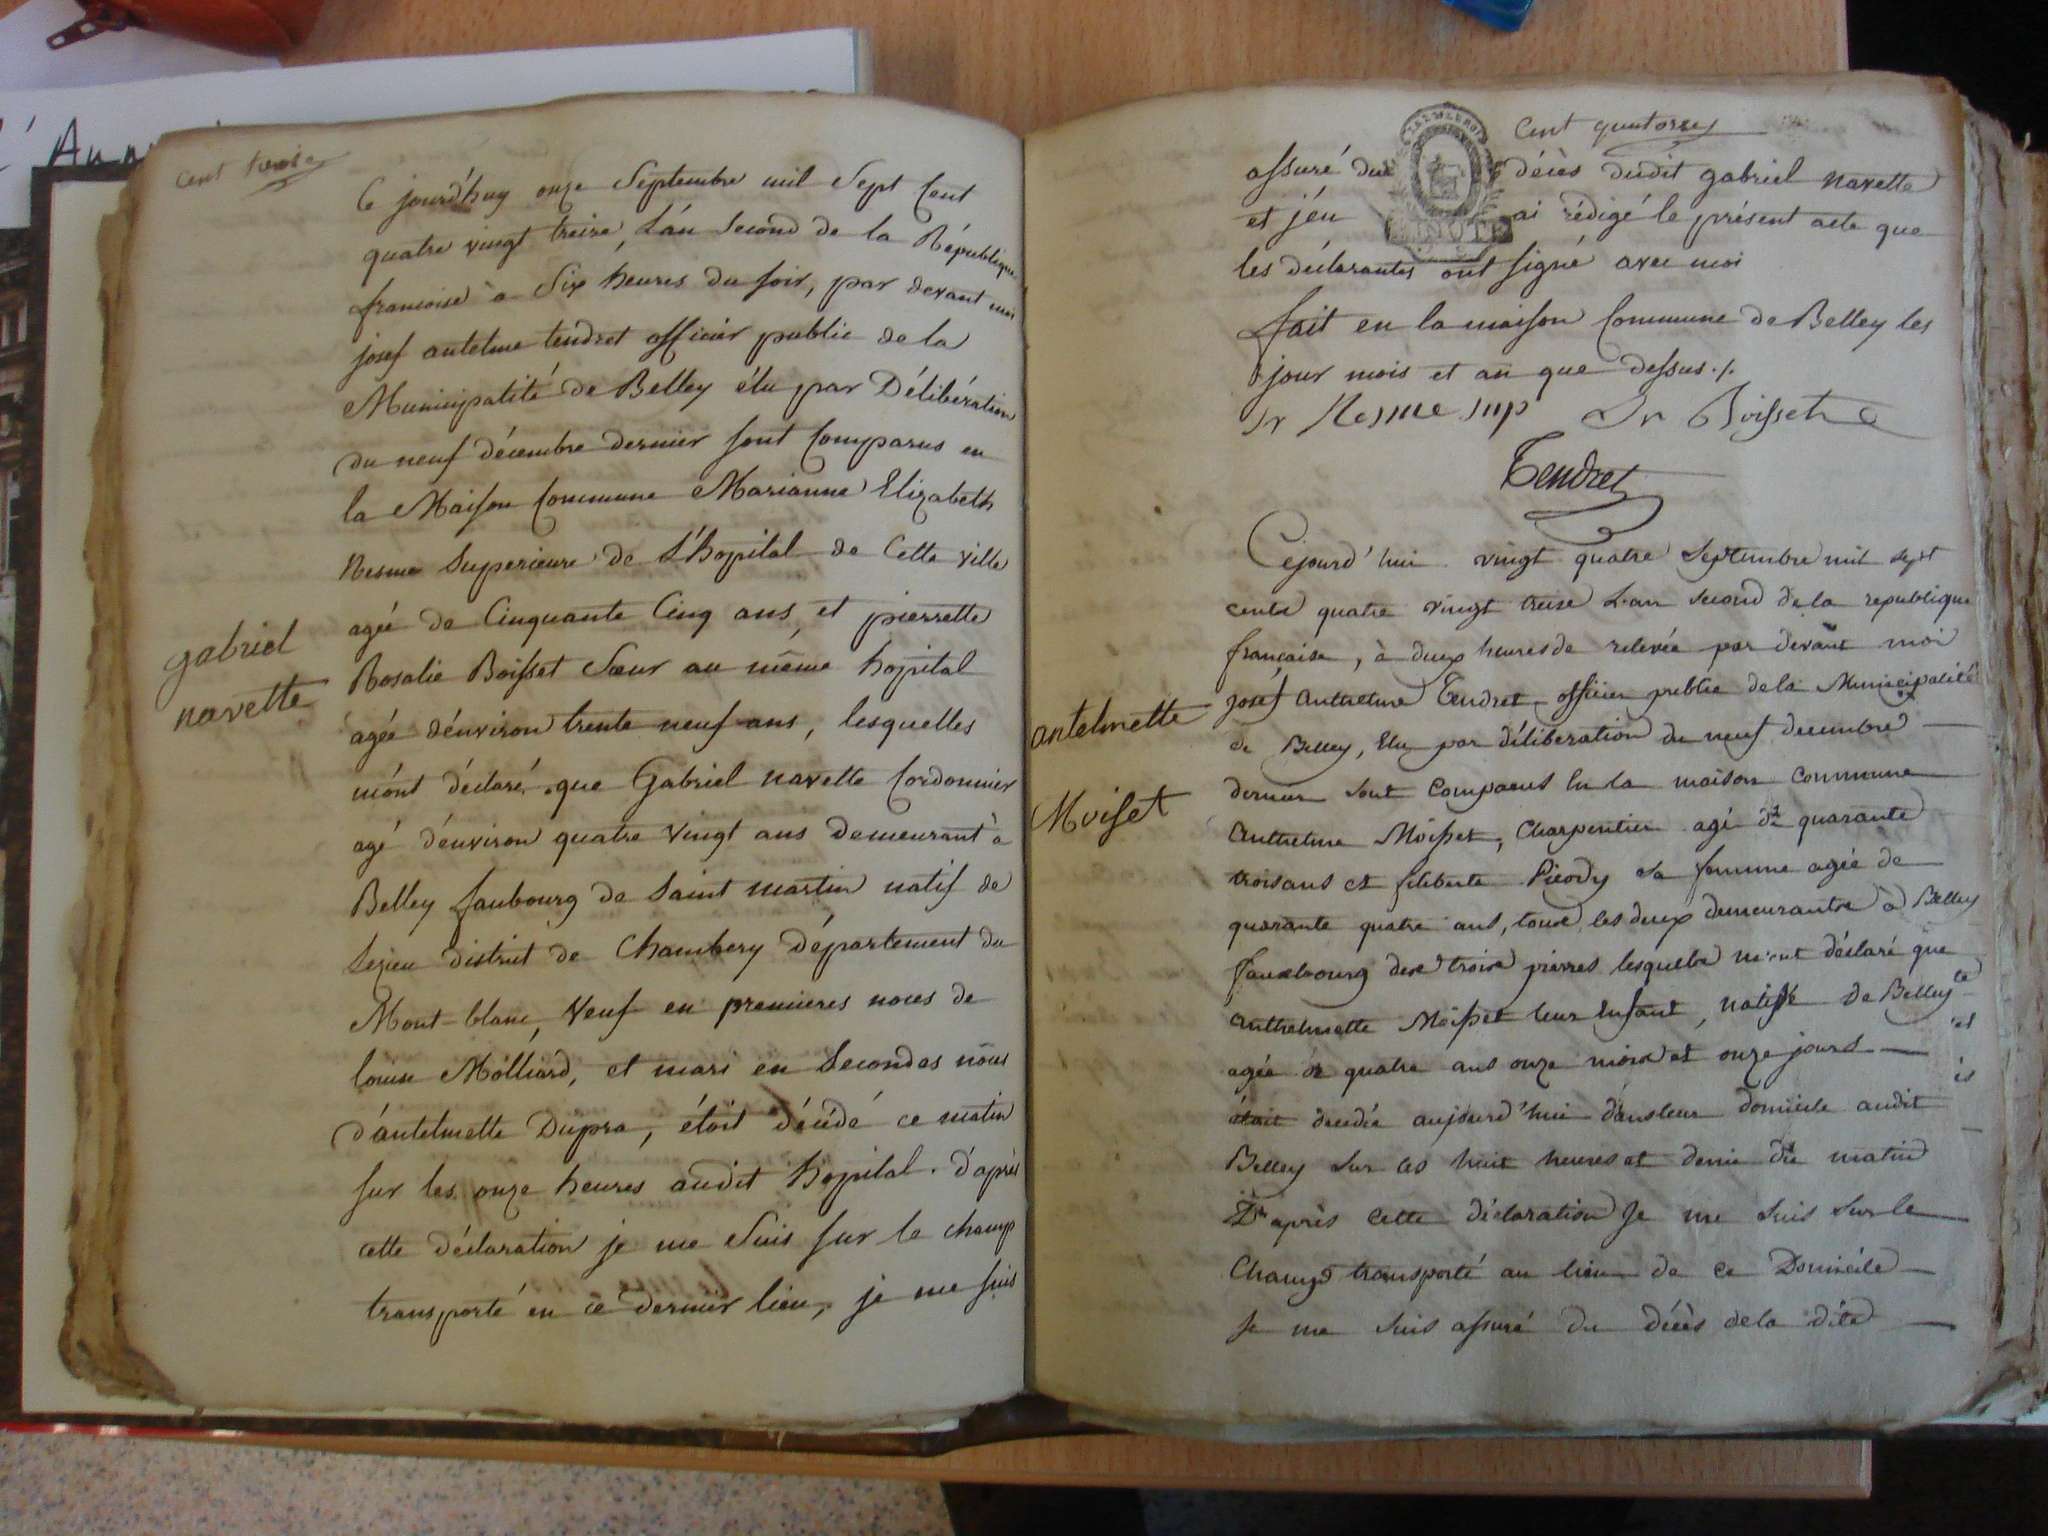 L'Ann
cent treize
Ce jourd'huy onze Septembre mil Sept Cent
quatre vingt treize, L'an Second de la République
francoise à Six heures du soir, par devant moi
josef antelme tendret officier public de la
Municipalité de Belley élu par Délibération
du neuf décembre dernier sont Comparus en
la Maison Commune Marianne Elizabeth
Nesme Superieure de L'Hopital de Cette ville
agée de Cinquante Cinq ans, et pierrette
Rosalie Boisset Sœur au même hopital
agée d'environ trente neuf ans, lesquelles
m'ont déclaré que Gabriel navette Cordonnier
agé d'environ quatre vingt ans demeurant à
Belley faubourg de Saint martin natif de
district de Chambery Département du
Mont-blanc, Veuf en premieres noces de
louise Molliard, et mari en Secondes nôces
d'antelmette Dupra, étoit décédé ce matin
sur les onze heures audit hopital. D'après
cette déclaration je me Suis sur le champ
transporté en ce dernier lieu, je me suis
gabriel
navette
cent quatorze
assuré dud décès dudit gabriel navette
et j'en ai rédigé le présent acte que
MINUTE
les déclarantes ont signé avec moi
fait en la maison Commune de Belley les
jour mois et an que dessus ./.
Sr Nesme sup Sr Boisset
Tendret
Cejourd'hui vingt quatre Septembre mil sept
cents quatre vingt treise L'an second de la republique
française, à deux heures de relevée par devant moi
Josef Anthelme Tendret officier public de la Municipalité
de Belley, Elu par délibération du neuf decembre
dernier sont comparus en la maison commune
Anthelme Moisset, Charpentier agé de quarante
trois ans et filiberte Picody sa femme agée de
quarante quatre ans, tous les deux demeurants à Belley
fauxbourg des trois pierres lesquels m'ont déclaré que
Anthelmette Moisset leur Enfant, native de Belley
agée de quatre ans onze mois et onze jours
était decedée aujourd'hui dans leur domicile audit
Belley sur les huit heures et demie du matin
D'après cette déclaration Je me suis sur le
Champ transporté au lieu de ce Domicile
Je me suis assuré du décès de la dite
antelmette
Moiset